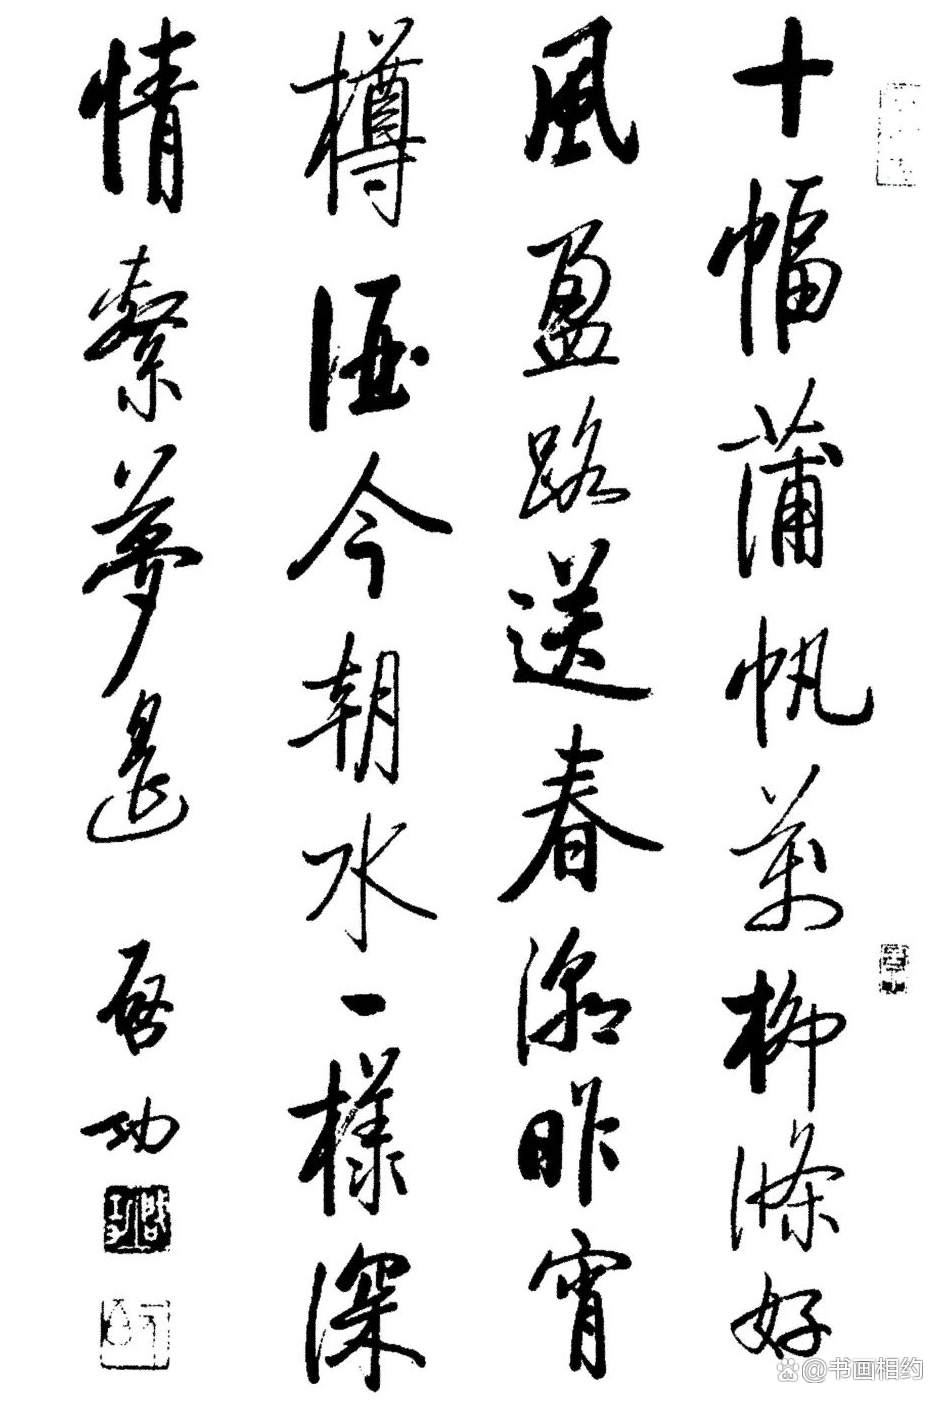 十幅蒲帆萬柳條好
風盈路送春潮昨宵
樽酒今朝水一樣深
情繫夢遙
啓功
@书画相约